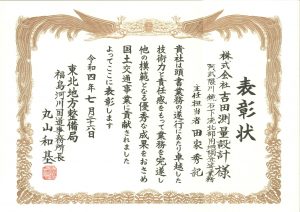 表彰状
株式会社吉田測量設計様
主任担当者 田家秀記
貴社は頭書業務の遂行にあたり卓越した
技術力と責任感をもって業務を完遂し
他の模範となる優秀な成果をおさめ
国土交通事業に貢献されました
よってここに表彰します
令和四年七月二十六日
東北地方整備局
福島河川国道事務所長
丸山和基